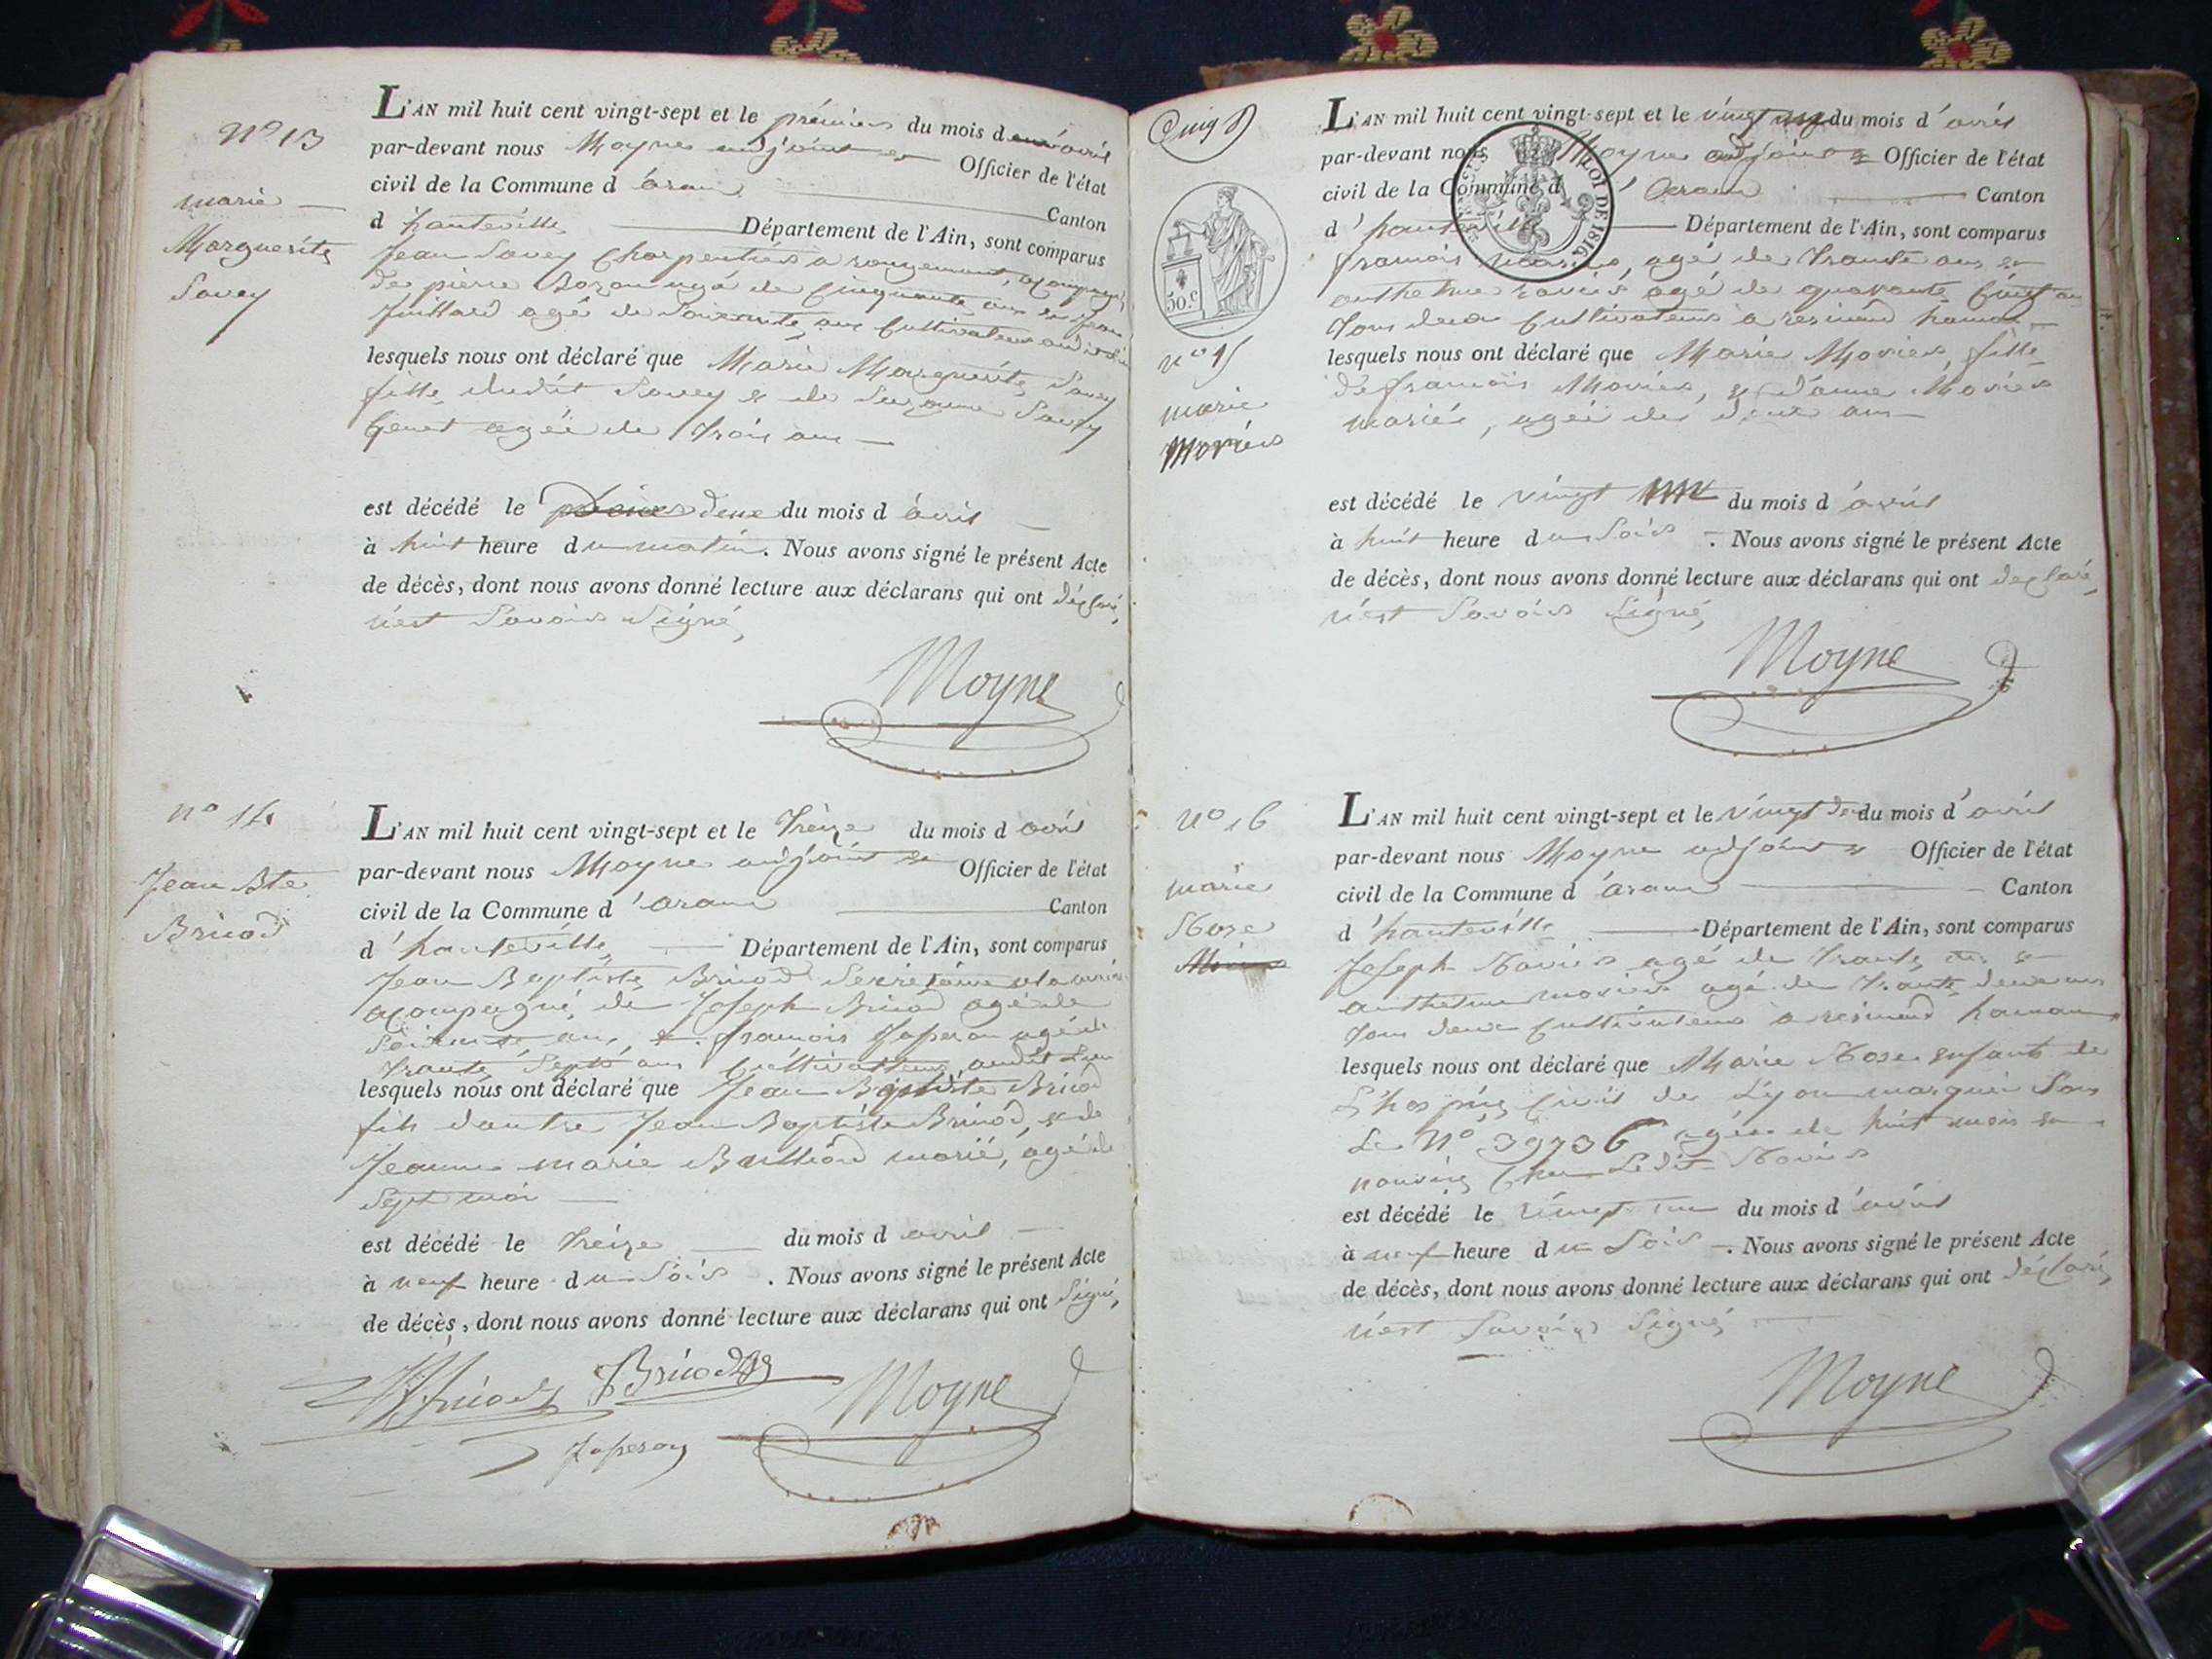 N° 13
marie
Marguerite
Savey
L'AN mil huit cent vingt-sept et le prémier du mois d avril
par-devant nous Moyne adjoint et Officier de l'état
civil de la Commune d 'aranc Canton
d hauteville Département de l'Ain, sont comparus
Jean Savey Charpentier a rougemont, acompagné
de pierre Bozon agé de Cinquante ans et jean
Juillard agé de Soixante ans Cultivateurs audit lieu
lesquels nous ont déclaré que Marie Marguerite Savey
fille dudit Savey et de Suzanne Savey
Genet agée de trois ans
est décédé le deux du mois d avril
à huit heure du matin. Nous avons signé le présent Acte
de décès, dont nous avons donné lecture aux déclarans qui ont déclaré
n'est Savoir Signé,
Moyne
n° 14
Jean Bte
Bricod
L'AN mil huit cent vingt-sept et le treize du mois d avril
par-devant nous Moyne adjoint et Officier de l'état
civil de la Commune d 'aranc Canton
d 'hauteville Département de l'Ain, sont comparus
Jean Baptiste Bricod Secretaire a la mairie
acompagné, de Joseph Bricod agé de
ans, et françois Japeron agé de
trante Sept ans Cultivatteurs audit Lieu
lesquels nous ont déclaré que Jean Baptiste Bricod
fils d'autre Jean Baptiste Bricod, et de
Jeanne marie marié, agé de
Sept moi
est décédé le treize du mois d avril
à neuf heure du Soir. Nous avons signé le présent Acte
de décès, dont nous avons donné lecture aux déclarans qui ont Signé,
Bricod
Moyne
Japeron
Cinq
50.c
LOI DE 1816
n° 15
marie
Moriér
L'AN mil huit cent vingt-sept et le vingt du mois d'avril
par-devant nous Moyne adjoint et Officier de l'état
civil de la Commune d 'aranc Canton
d 'hauteville Département de l'Ain, sont comparus
françois agé de trante ans et
anthelme ravier agé de quarante Cinq ans
tous deux Cultivateurs a resinand hameau
lesquels nous ont déclaré que Marie Moriér, fille
de françois Moriér, et d'anne Moriér
mariés, agée de deux ans
est décédé le vingt du mois d 'avril
à huit heure du Soir. Nous avons signé le présent Acte
de décès, dont nous avons donné lecture aux déclarans qui ont déclaré,
n'est Savoir Signé,
Moyne
N° 16
marie
Rose
L'AN mil huit cent vingt-sept et le vingt deux du mois d'avril
par-devant nous Moyne adjoint et Officier de l'état
civil de la Commune d 'aranc Canton
d 'hauteville Département de l'Ain, sont comparus
Joseph Ravier agé de trante ans et
anthelme moriér agé de trante deux ans
tous deux Cultivateurs a resinand hameau
lesquels nous ont déclaré que Marie Rose enfant de
L'hospice Civil de Lyon marquée Sous
Le N° 39736 agée de huit mois en
nourice Chez Ledit Ravier
est décédé le vingt un du mois d 'avril
à neuf heure du Soir. Nous avons signé le présent Acte
de décès, dont nous avons donné lecture aux déclarans qui ont déclaré,
n'est Savoir Signé
Moyne